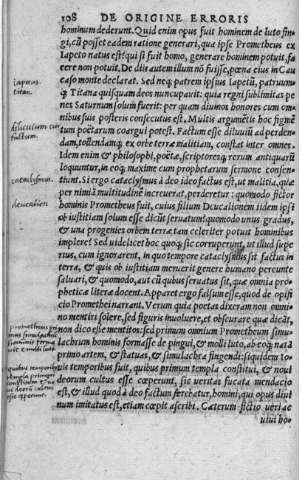 108 DE ORIGINE ERRORIS
hominum dederunt. Quid enim opus fuit hominem de luto fin-
gi, cū posset eadem ratione generari, qua ipse Prometheus ex
Iapeto natus est? qui si fuit homo, generare hominem potuit, fa
cere non potuit. De diis autem illum nō fuisse, pœna eius in Cau
caso monte declarat. Sed neq; patrem ipsius Iapetū, patruum-
q; Titana quisquam deos nuncupauit: quia regni sublimitas pe
nes Saturnum solum fuerit: per quam diuinos honores cum om
nibus suis posteris consecutus est. Multis argumētis hoc figmē
tum poëtarum coargui potest. Factum esse diluuiū ad perden-
dam, tollendamq; ex orbe terræ malitiam, constat inter omnes.
Idem enim & philosophi, poëtæ, scriptoresq; rerum antiquarū
loquuntur, in eoq; maxime cum prophetarum sermone consen
tiunt. Si ergo cataclysmos à deo ideo factus est, ut malitia, quæ
per nimiā multitudinē increuerat, perderetur: quomodo fictor
hominis Prometheus fuit, cuius filium Deucalionem iidem ipsi
ob iustitiam solum esse dicūt seruatum? quomodo unus gradus,
& una progenies orbem terræ tam celeriter potuit hominibus
implere? Sed uidelicet hoc quoq; sic corruperunt, ut illud supe
rius, cum ignorarent, in quo tempore cataclysmus sit factus in
terra, & quis ob iustitiam meruerit genere humano pereunte
saluari, & quomodo, aut cū quibus seruatus sit, quæ omnia pro-
phetica litera docent. Apparet ergo falsum esse, quod de opifi-
cio Promethei narrant. Verum quia poëtas dixeram non omni
no mentiri solere, sed figuris inuoluere, et obscurare quæ dicāt,
non dico esse mentitos: sed primum omnium Prometheum simu
lachrum hominis formasse de pingui, & molli luto, ab eoq; natā
primo artem, & statuas, & simulachra fingendi: siquidem Io-
uis temporibus fuit, quibus primum templa constitui, & noui
deorum cultus esse cœperunt, sic ueritas fucata mendacio
est, & illud quod à deo factum ferebatur, homini, qui opus diui
num imitatus est, etiam cœpit ascribi. Cæterum fictio ueri ac
uiui ho-
Iapetus.
titan.
cataclysmus.
deucalion